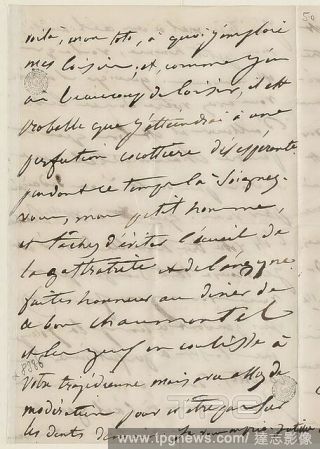 voilà, mon toto, à quoi j'emploie
mes loisirs, et, comme j'en
ai beaucoup de loisir, il est
probable que j'atteindrai à une
perfection cocottière désespérante
pendant ce temps là soignez
vous, mon petit homme,
et tâchez d'éviter l'écueil de
la gastrite et de l'angine.
faites honneur au diner de
ce bon chaumontel
et
en coulisse à
votre tragédienne mais avec assez de
modération pour n'être pas sur
les dents demain.
50
TPG
www.tpgnews.com/達志影像